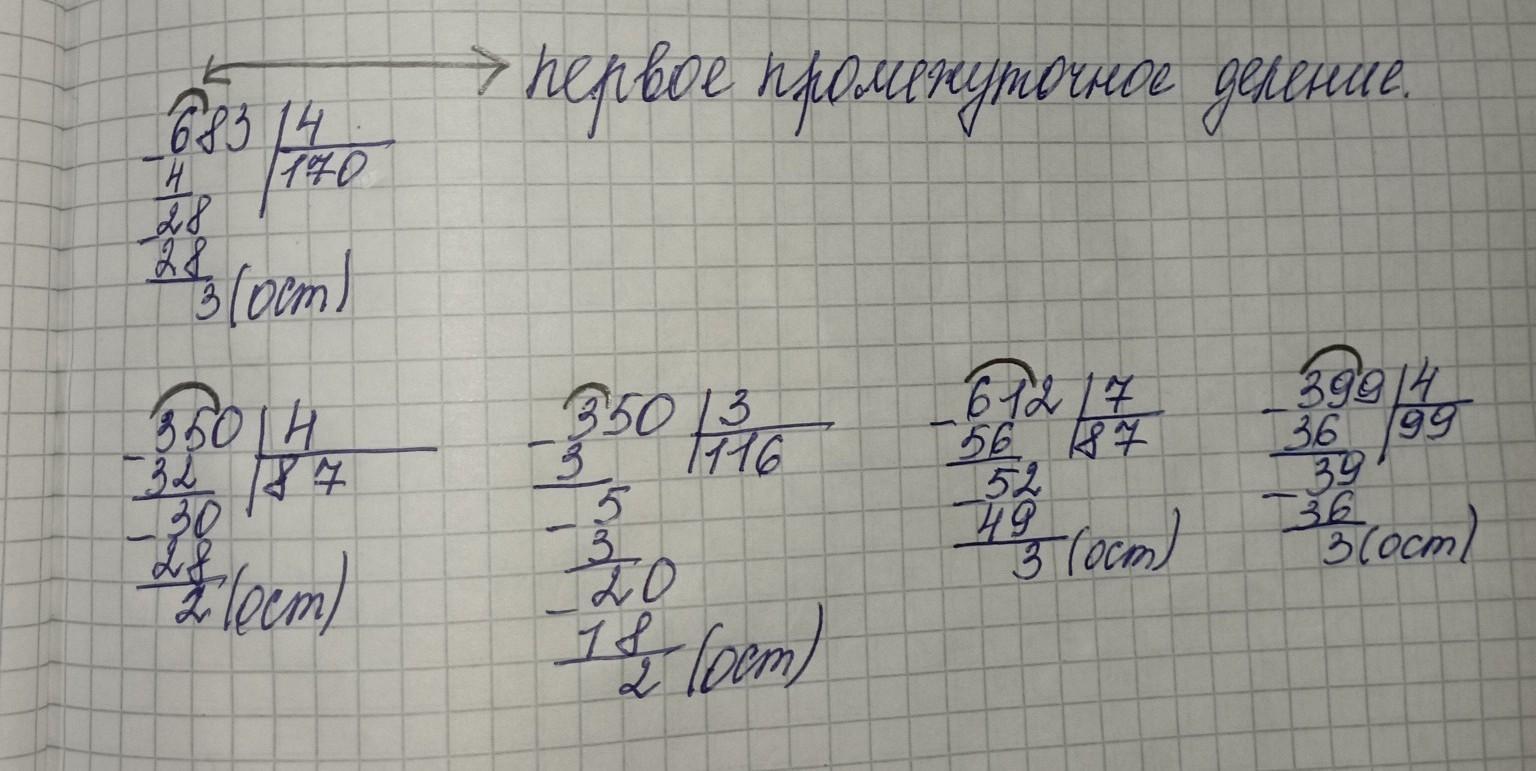 первое промежуточное деление.
683 4
4 170
28
28
3 (ост)
350 4
32 87
30
28
2 (ост)
350 3
3 116
5
3
20
18
2 (ост)
612 7
56 87
52
49
3 (ост)
399 4
36 99
39
36
3 (ост)